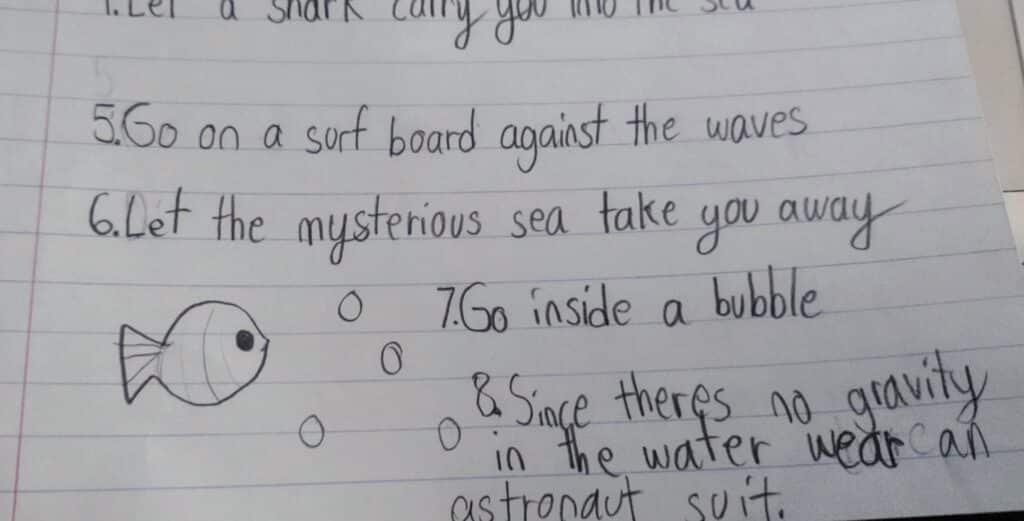 1.Let a shark carry you into the sea
5.Go on a surf board against the waves
6.Let the mysterious sea take you away
7.Go inside a bubble
8.Since theres no gravity
in the water wear an
astronaut suit.